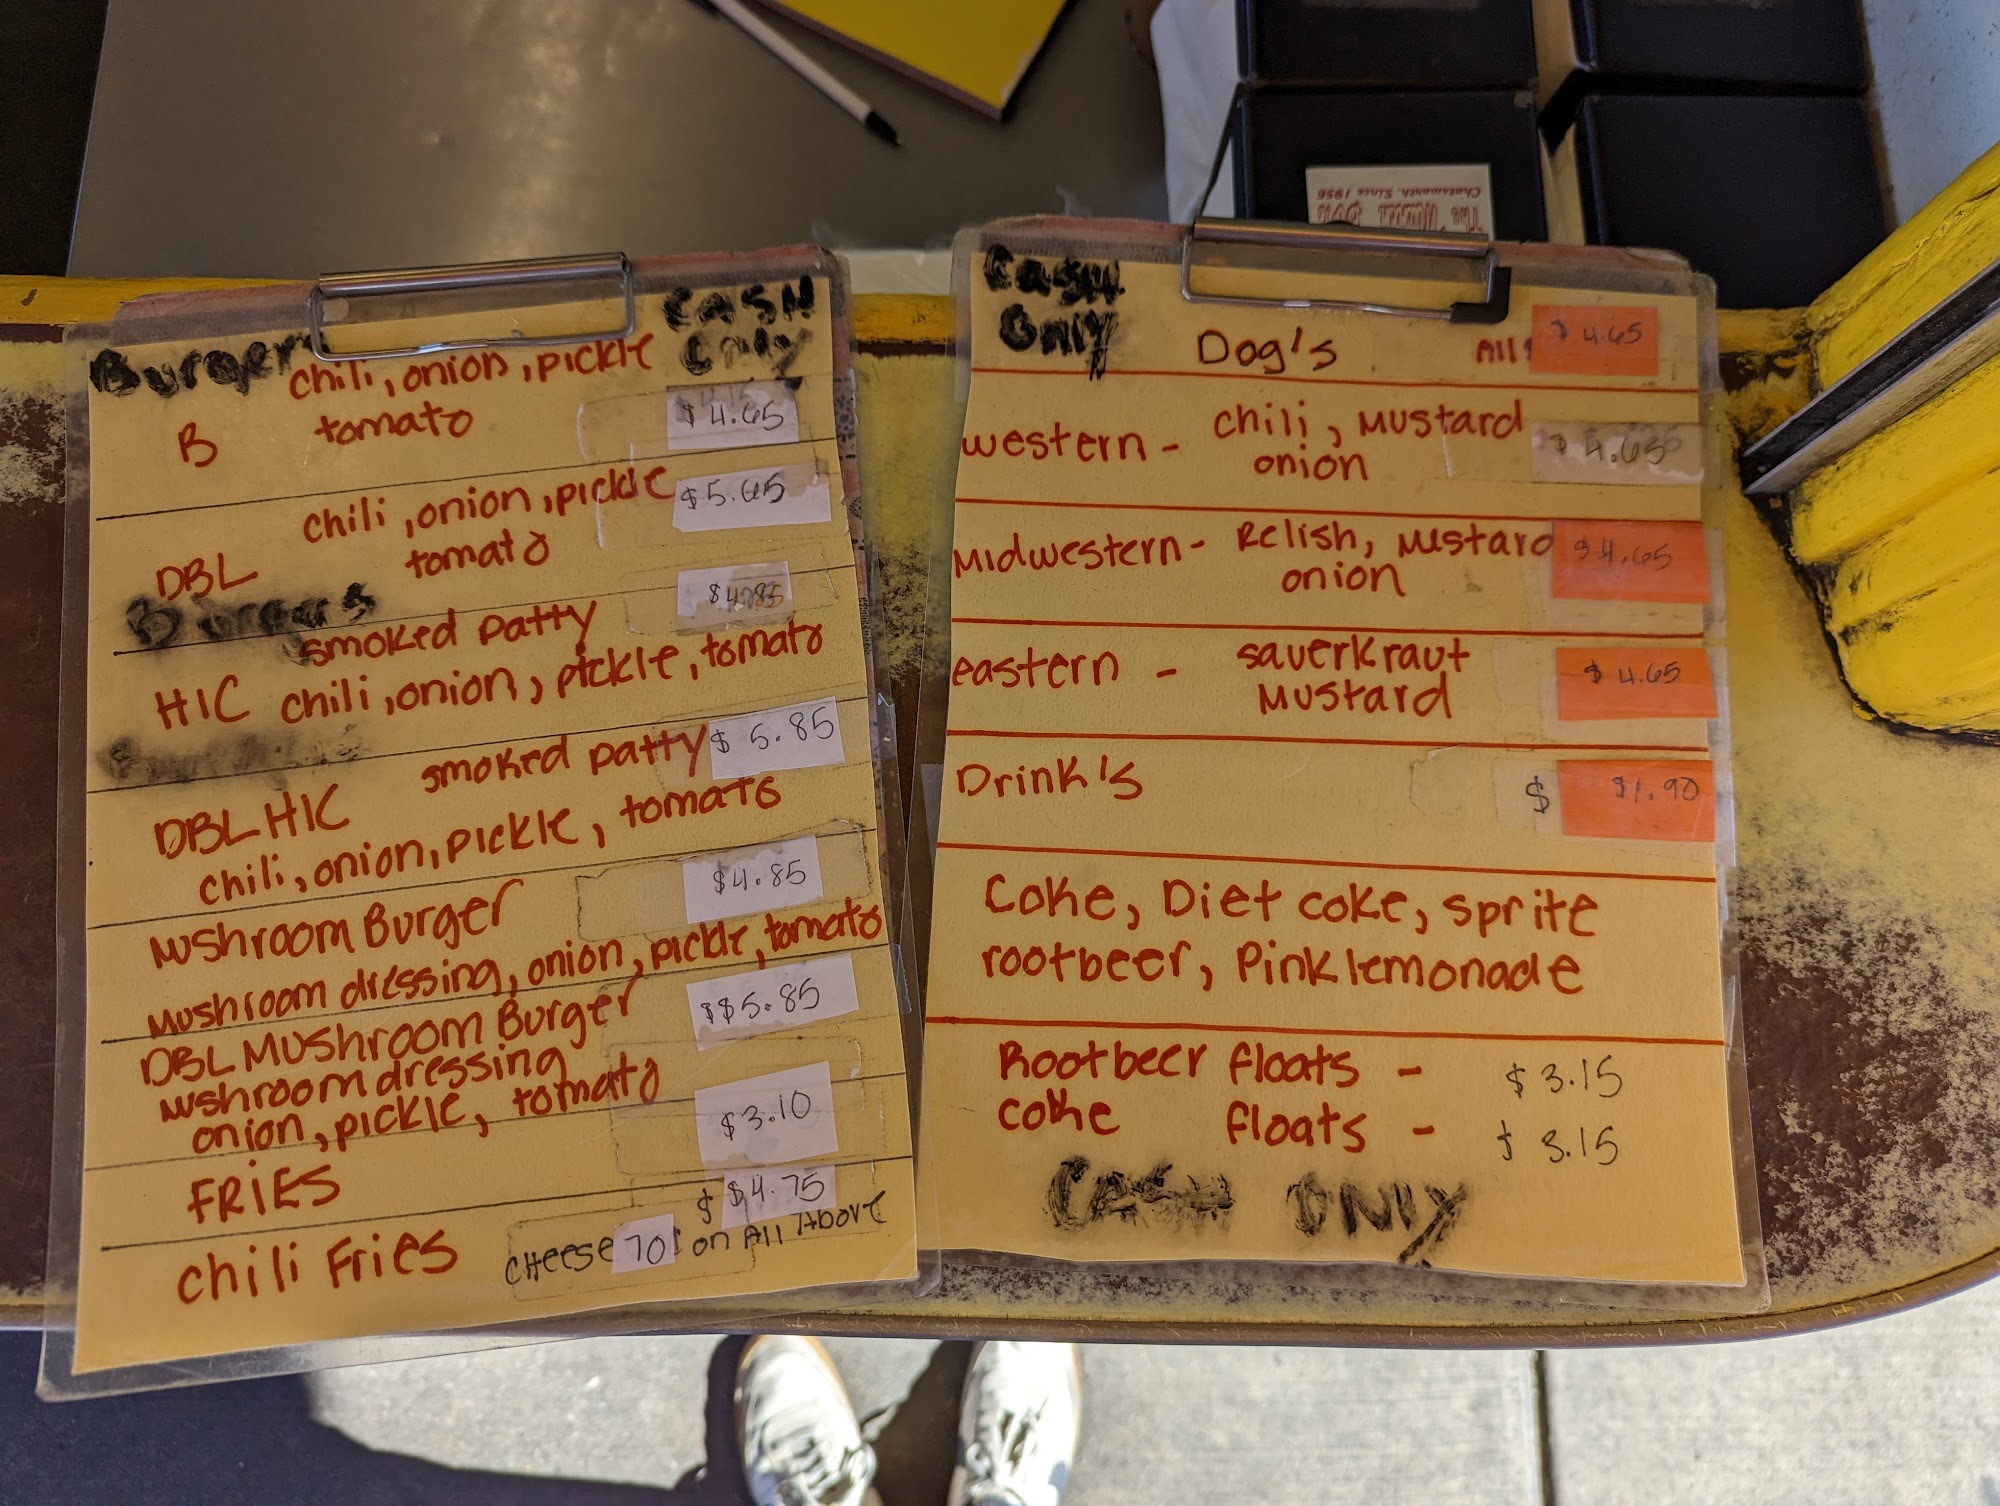 Chatsworth. Since 1956
The Munch Box
Burgers
Cash
Only
chili, onion, pickle
B tomato
$4.65
chili, onion, pickle
$5.65
DBL tomato
Burgers
smoked patty
$4.85
HIC chili, onion, pickle, tomato
smoked patty
$5.85
DBL HIC
chili, onion, pickle, tomato
Mushroom Burger
$4.85
Mushroom dressing, onion, pickle, tomato
DBL Mushroom Burger
$$5.85
Mushroom dressing
onion, pickle, tomato
FRiES
$3.10
$ $4.75
chili Fries
CHeese 70¢ on All Above
Cash
Only
Dog's
All
$4.65
western - chili, Mustard
onion
$4.65
Midwestern - Relish, Mustard
onion
$4.65
eastern - sauerkraut
Mustard
$4.65
Drink's
$ $1.90
Coke, Diet coke, sprite
rootbeer, Pink lemonade
Rootbeer floats - $3.15
coke floats - $3.15
CASH ONLY